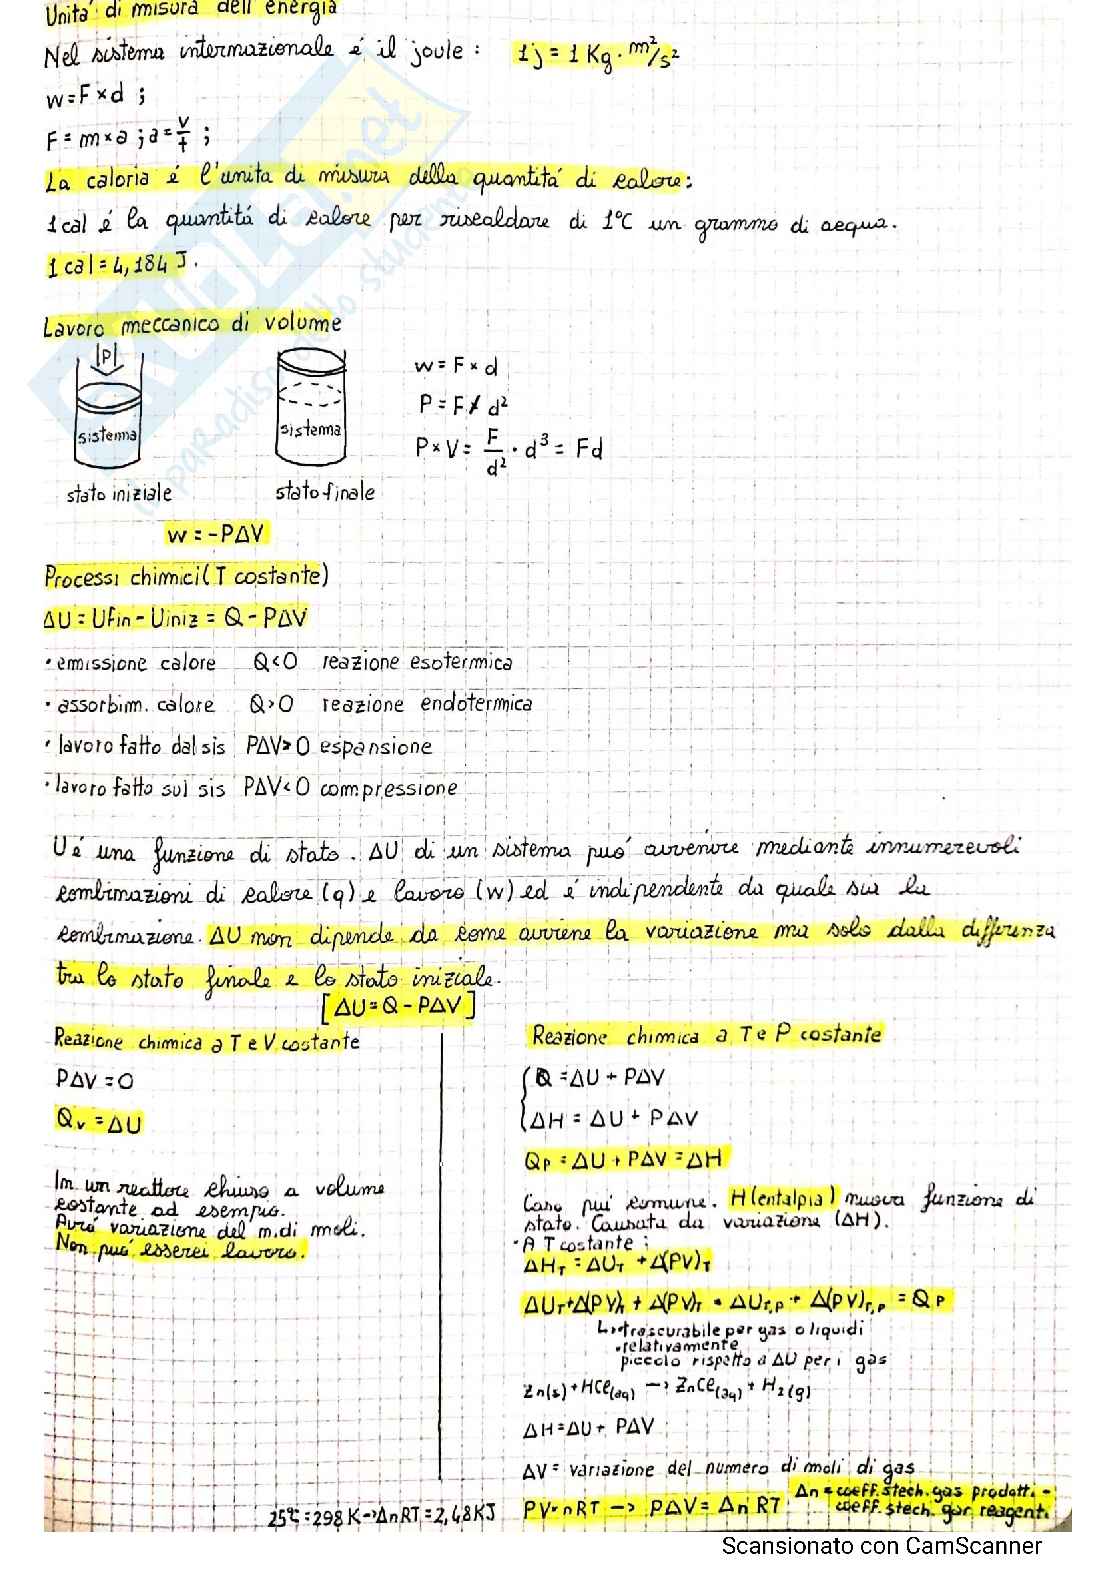 Unitá di misura dell'energia
Nel sistema internazionale é il joule : 1j = 1 Kg · m²/s²
w=F×d ;
F = m×a ; a = v/t ;
La caloria é l'unita di misura della quantitá di calore:
1 cal é la quantitá di calore per riscaldare di 1°C un grammo di acqua.
1 cal = 4,184 J.
Lavoro meccanico di volume
|P|
sistema
sistema
stato iniziale
stato finale
w = F × d
P = F/d²
P×V = F/d² · d³ = Fd
w = -PΔV
Processi chimici (T costante)
ΔU = Ufin - Uiniz = Q - PΔV
· emissione calore Q<0 reazione esotermica
· assorbim. calore Q>0 reazione endotermica
· lavoro fatto dal sis PΔV>0 espansione
· lavoro fatto sul sis PΔV<0 compressione
U é una funzione di stato. ΔU di un sistema puó avvenire mediante innumerevoli
combinazioni di calore (q) e lavoro (w) ed é indipendente da quale sia la
combinazione. ΔU non dipende da come avviene la variazione ma solo dalla differenza
tra lo stato finale e lo stato iniziale.
[ΔU = Q - PΔV]
Reazione chimica a T e V costante
PΔV = 0
Qv = ΔU
In un reattore chiuso a volume
costante ad esempio.
variazione del n. di moli.
Non puó esserci lavoro.
25°C = 298 K → ΔnRT = 2,48 KJ
Reazione chimica a T e P costante
Q = ΔU + PΔV
ΔH = ΔU + PΔV
Qp = ΔU + PΔV = ΔH
Caso piú comune. H (entalpia) nuova funzione di
stato. Causata da variazione (ΔH).
· A T costante :
ΔH_T = ΔU_T + Δ(PV)_T
ΔU_T + Δ(PV)_T + Δ(PV)_T = ΔU_T,P + Δ(PV)_T,P = Qp
↳ · trascurabile per gas o liquidi
· relativamente
piccolo rispetto a ΔU per i gas
Zn(s) + HCl(aq) → ZnCl(aq) + H₂(g)
ΔH = ΔU + PΔV
ΔV = variazione del numero di moli di gas
PV = nRT → PΔV = Δn RT
Δn = coeff. stech. gas prodotti -
coeff. stech. gas reagenti
Scansionato con CamScanner